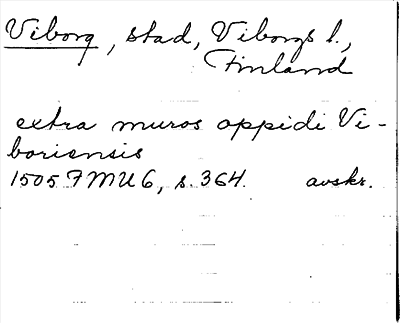 Viborg, stad, Viborgs l.,
Finland
extra muros oppidi Vi-
boriensis
1505 FMU 6, s. 364. avskr.